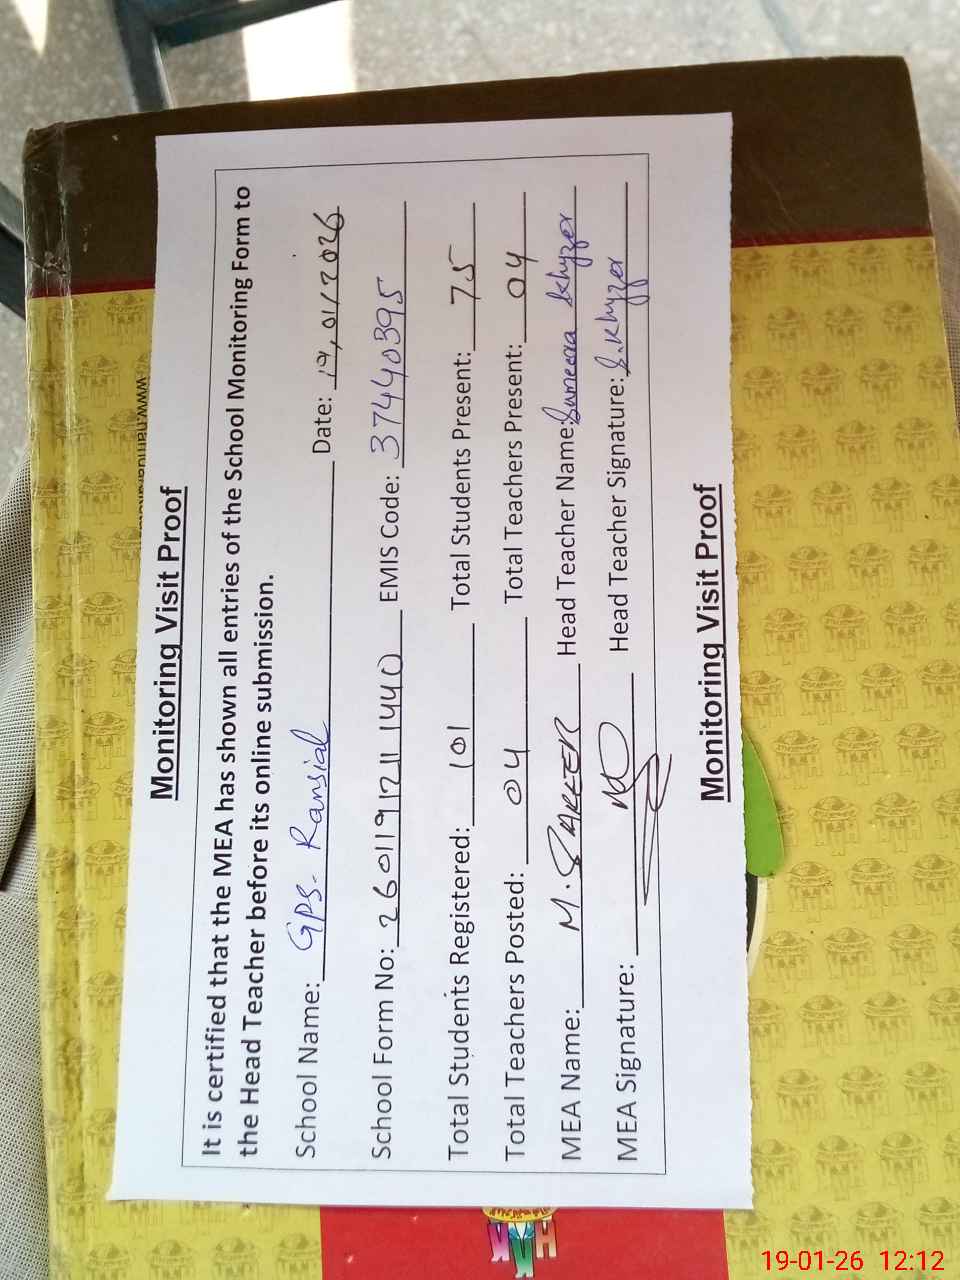 Monitoring Visit Proof
It is certified that the MEA has shown all entries of the School Monitoring Form to
the Head Teacher before its online submission.
School Name: GPS- Ransial Date: 19, 01/2026
School Form No: 26011912111440 EMIS Code: 37440395
Total Students Registered: 101 Total Students Present: 75
Total Teachers Posted: 04 Total Teachers Present: 04
MEA Name: M. Head Teacher Name: Sumeera Khyzer
MEA Signature: Head Teacher Signature: S.Khyzer
Monitoring Visit Proof
19-01-26 12:12